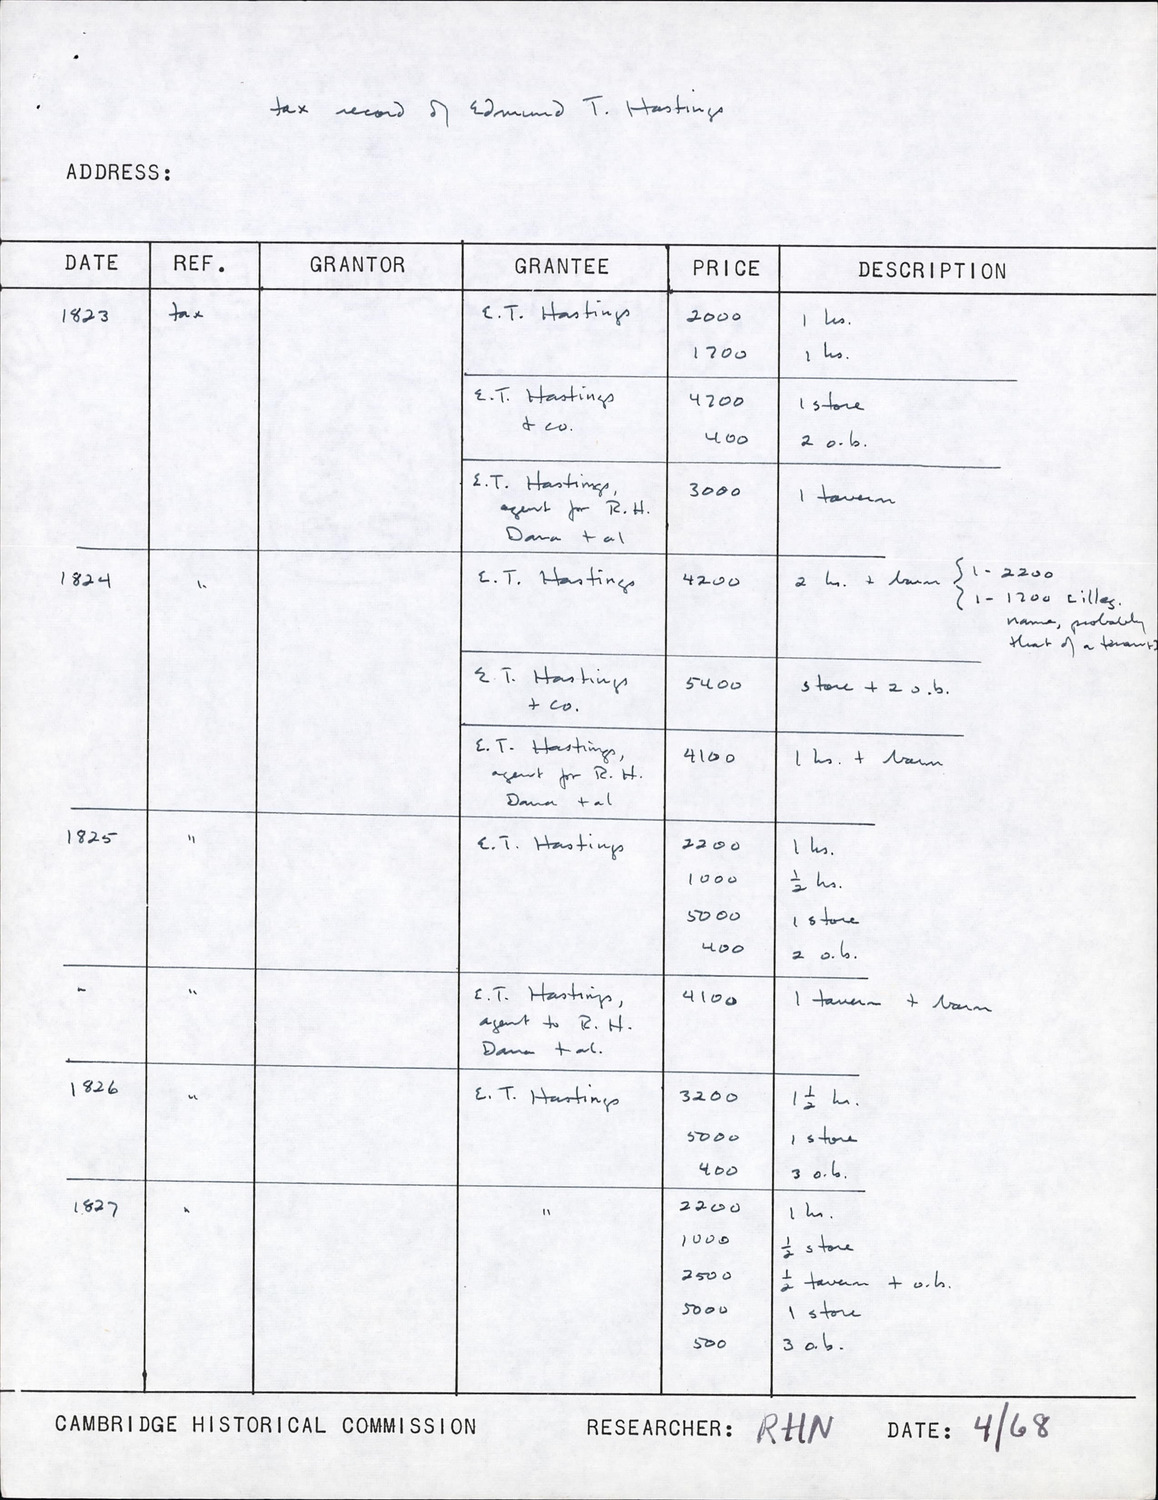 tax record of Edmund T. Hastings
ADDRESS:
DATE REF. GRANTOR GRANTEE PRICE DESCRIPTION
1823 tax E.T. Hastings 2000 1 hs.
1700 1 hs.
E.T. Hastings 4700 1 store
+ co. 400 2 o.b.
E.T. Hastings, 3000 1 tavern
agent for R.H.
Dana + al
1824 " E.T. Hastings 4200 2 hs. + barn { 1 - 2200
{ 1 - 1700 [illeg.
name, probably
that of a tenant]
E.T. Hastings 5400 store + 2 o.b.
+ co.
E.T. Hastings, 4100 1 hs. + barn
agent for R.H.
Dana + al
1825 " E.T. Hastings 2200 1 hs.
1000 ½ hs.
5000 1 store
400 2 o.b.
" " E.T. Hastings, 4100 1 tavern + barn
agent to R.H.
Dana + al.
1826 " E.T. Hastings 3200 1½ hs.
5000 1 store
400 3 o.b.
1827 " " 2200 1 hs.
1000 ½ store
2500 ½ tavern + o.b.
5000 1 store
500 3 o.b.
CAMBRIDGE HISTORICAL COMMISSION RESEARCHER: RHN DATE: 4/68